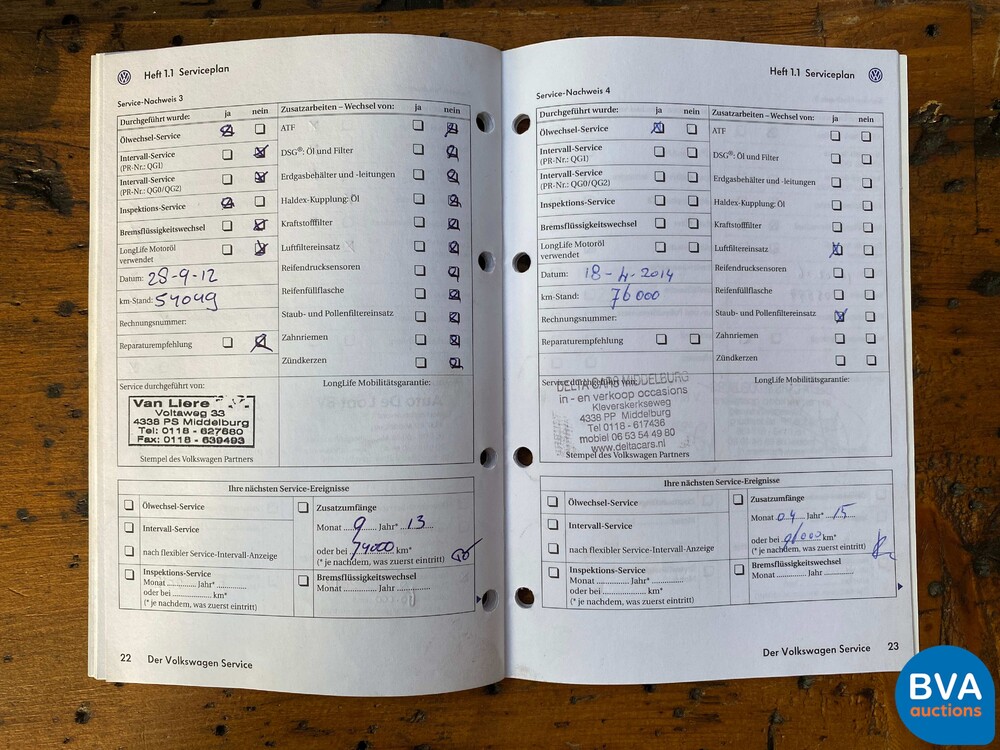 Heft 1.1 Serviceplan
Service-Nachweis 3
Durchgeführt wurde: ja nein
Zusatzarbeiten – Wechsel von: ja nein
Ölwechsel-Service
Intervall-Service
(PR-Nr.: QG1)
Intervall-Service
(PR-Nr.: QG0/QG2)
Inspektions-Service
Bremsflüssigkeitswechsel
LongLife Motoröl
verwendet
Datum: 28-9-12
km-Stand: 54049
Rechnungsnummer:
Reparaturempfehlung
ATF
DSG®: Öl und Filter
Erdgasbehälter und -leitungen
Haldex-Kupplung: Öl
Kraftstofffilter
Luftfiltereinsatz
Reifendrucksensoren
Reifenfüllflasche
Staub- und Pollenfiltereinsatz
Zahnriemen
Zündkerzen
Service durchgeführt von:
Van Liere
Voltaweg 33
4338 PS Middelburg
Tel: 0118 - 627880
Fax: 0118 - 639493
Stempel des Volkswagen Partners
LongLife Mobilitätsgarantie:
Ihre nächsten Service-Ereignisse
Ölwechsel-Service
Intervall-Service
nach flexibler Service-Intervall-Anzeige
Inspektions-Service
Monat ............ Jahr* ............
oder bei ............ km*
(* je nachdem, was zuerst eintritt)
Zusatzumfänge
Monat 9 Jahr* 13
oder bei 74000 km*
(* je nachdem, was zuerst eintritt)
Bremsflüssigkeitswechsel
Monat ............ Jahr ............
22 Der Volkswagen Service
Heft 1.1 Serviceplan
Service-Nachweis 4
Durchgeführt wurde: ja nein
Zusatzarbeiten – Wechsel von: ja nein
Ölwechsel-Service
Intervall-Service
(PR-Nr.: QG1)
Intervall-Service
(PR-Nr.: QG0/QG2)
Inspektions-Service
Bremsflüssigkeitswechsel
LongLife Motoröl
verwendet
Datum: 18-4-2014
km-Stand: 76000
Rechnungsnummer:
Reparaturempfehlung
ATF
DSG®: Öl und Filter
Erdgasbehälter und -leitungen
Haldex-Kupplung: Öl
Kraftstofffilter
Luftfiltereinsatz
Reifendrucksensoren
Reifenfüllflasche
Staub- und Pollenfiltereinsatz
Zahnriemen
Zündkerzen
Service durchgeführt von:
DELTA CARS MIDDELBURG
in - en verkoop occasions
Kleverskerkseweg
4338 PP Middelburg
Tel 0118 - 617436
mobiel 06 53 54 49 80
www.deltacars.nl
Stempel des Volkswagen Partners
LongLife Mobilitätsgarantie:
Ihre nächsten Service-Ereignisse
Ölwechsel-Service
Intervall-Service
nach flexibler Service-Intervall-Anzeige
Inspektions-Service
Monat ............ Jahr* ............
oder bei ............ km*
(* je nachdem, was zuerst eintritt)
Zusatzumfänge
Monat 04 Jahr* 15
oder bei 91000 km*
(* je nachdem, was zuerst eintritt)
Bremsflüssigkeitswechsel
Monat ............ Jahr ............
Der Volkswagen Service 23
BVA
auctions